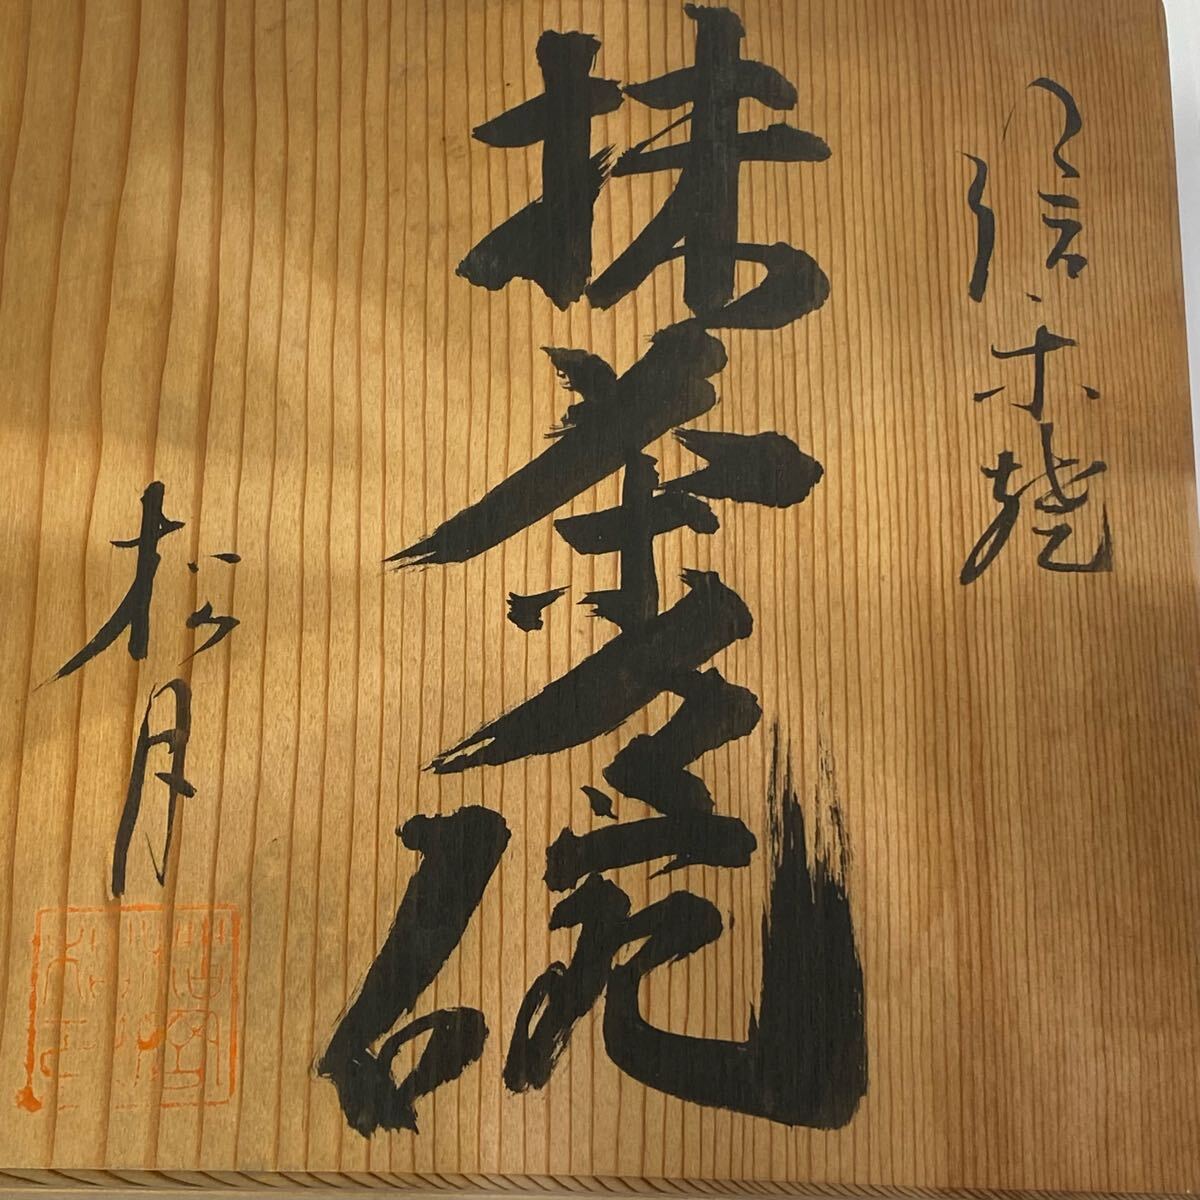 信楽焼
抹茶々碗
松月